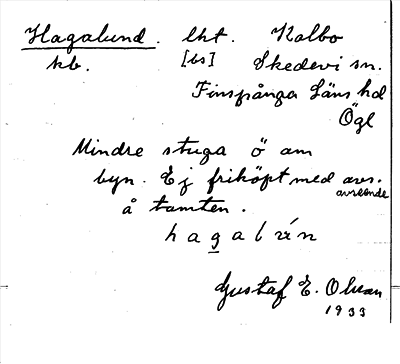 Hagalund. lht. Kalbo
kb. [bs] Skedevi sn.
Finspånga Läns hd
Ögl
Mindre stuga ö om
byn. Ej friköpt med avs.
avseende
å tomten.
Gustaf E. Olsson
1933